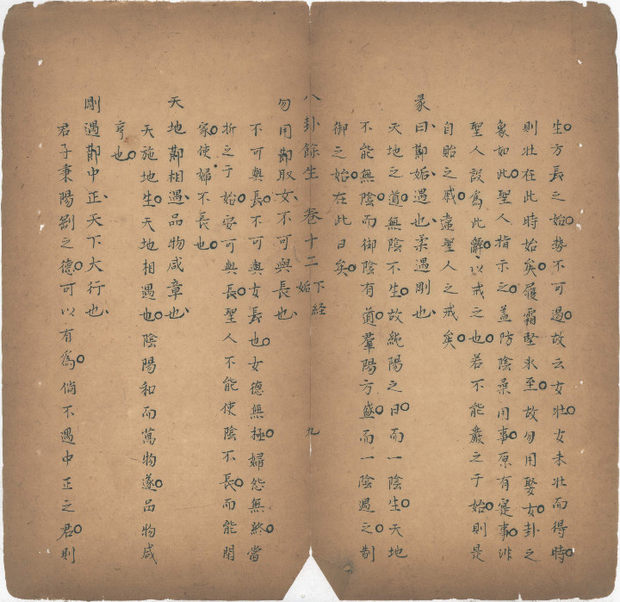 生方長之始勢不可遏故云女壯女未壯而得時
則壯在此時始矣履霜堅氷至故勿用娶女卦之
象如此聖人指示之盖防陰柔用事原有寔事非
聖人設為此辭以戒之也若不能嚴之于始則是
自貽之戚違聖人之戒矣
彖曰鄁姤遇也柔遇剛也
天地之道無陰不生故純陽之日而一陰生天地
不能無陰而御陰有道羣陽方盛而一陰遇之制
御之始在此日矣
八卦餘生 卷十二 下経 姤 九
勿用鄁取女不可與長也
不可與長不可與女長也女德無極婦怨無終當
折之于始家可與長聖人不能使陰不長而能閑
家使婦不長也
天地鄁相遇品物咸章也
天施地生天地相遇也陰陽和而萬物遂品物咸
亨也
剛遇鄁中正天下大行也
君子秉陽剛之德可以有為倘不遇中正之君則